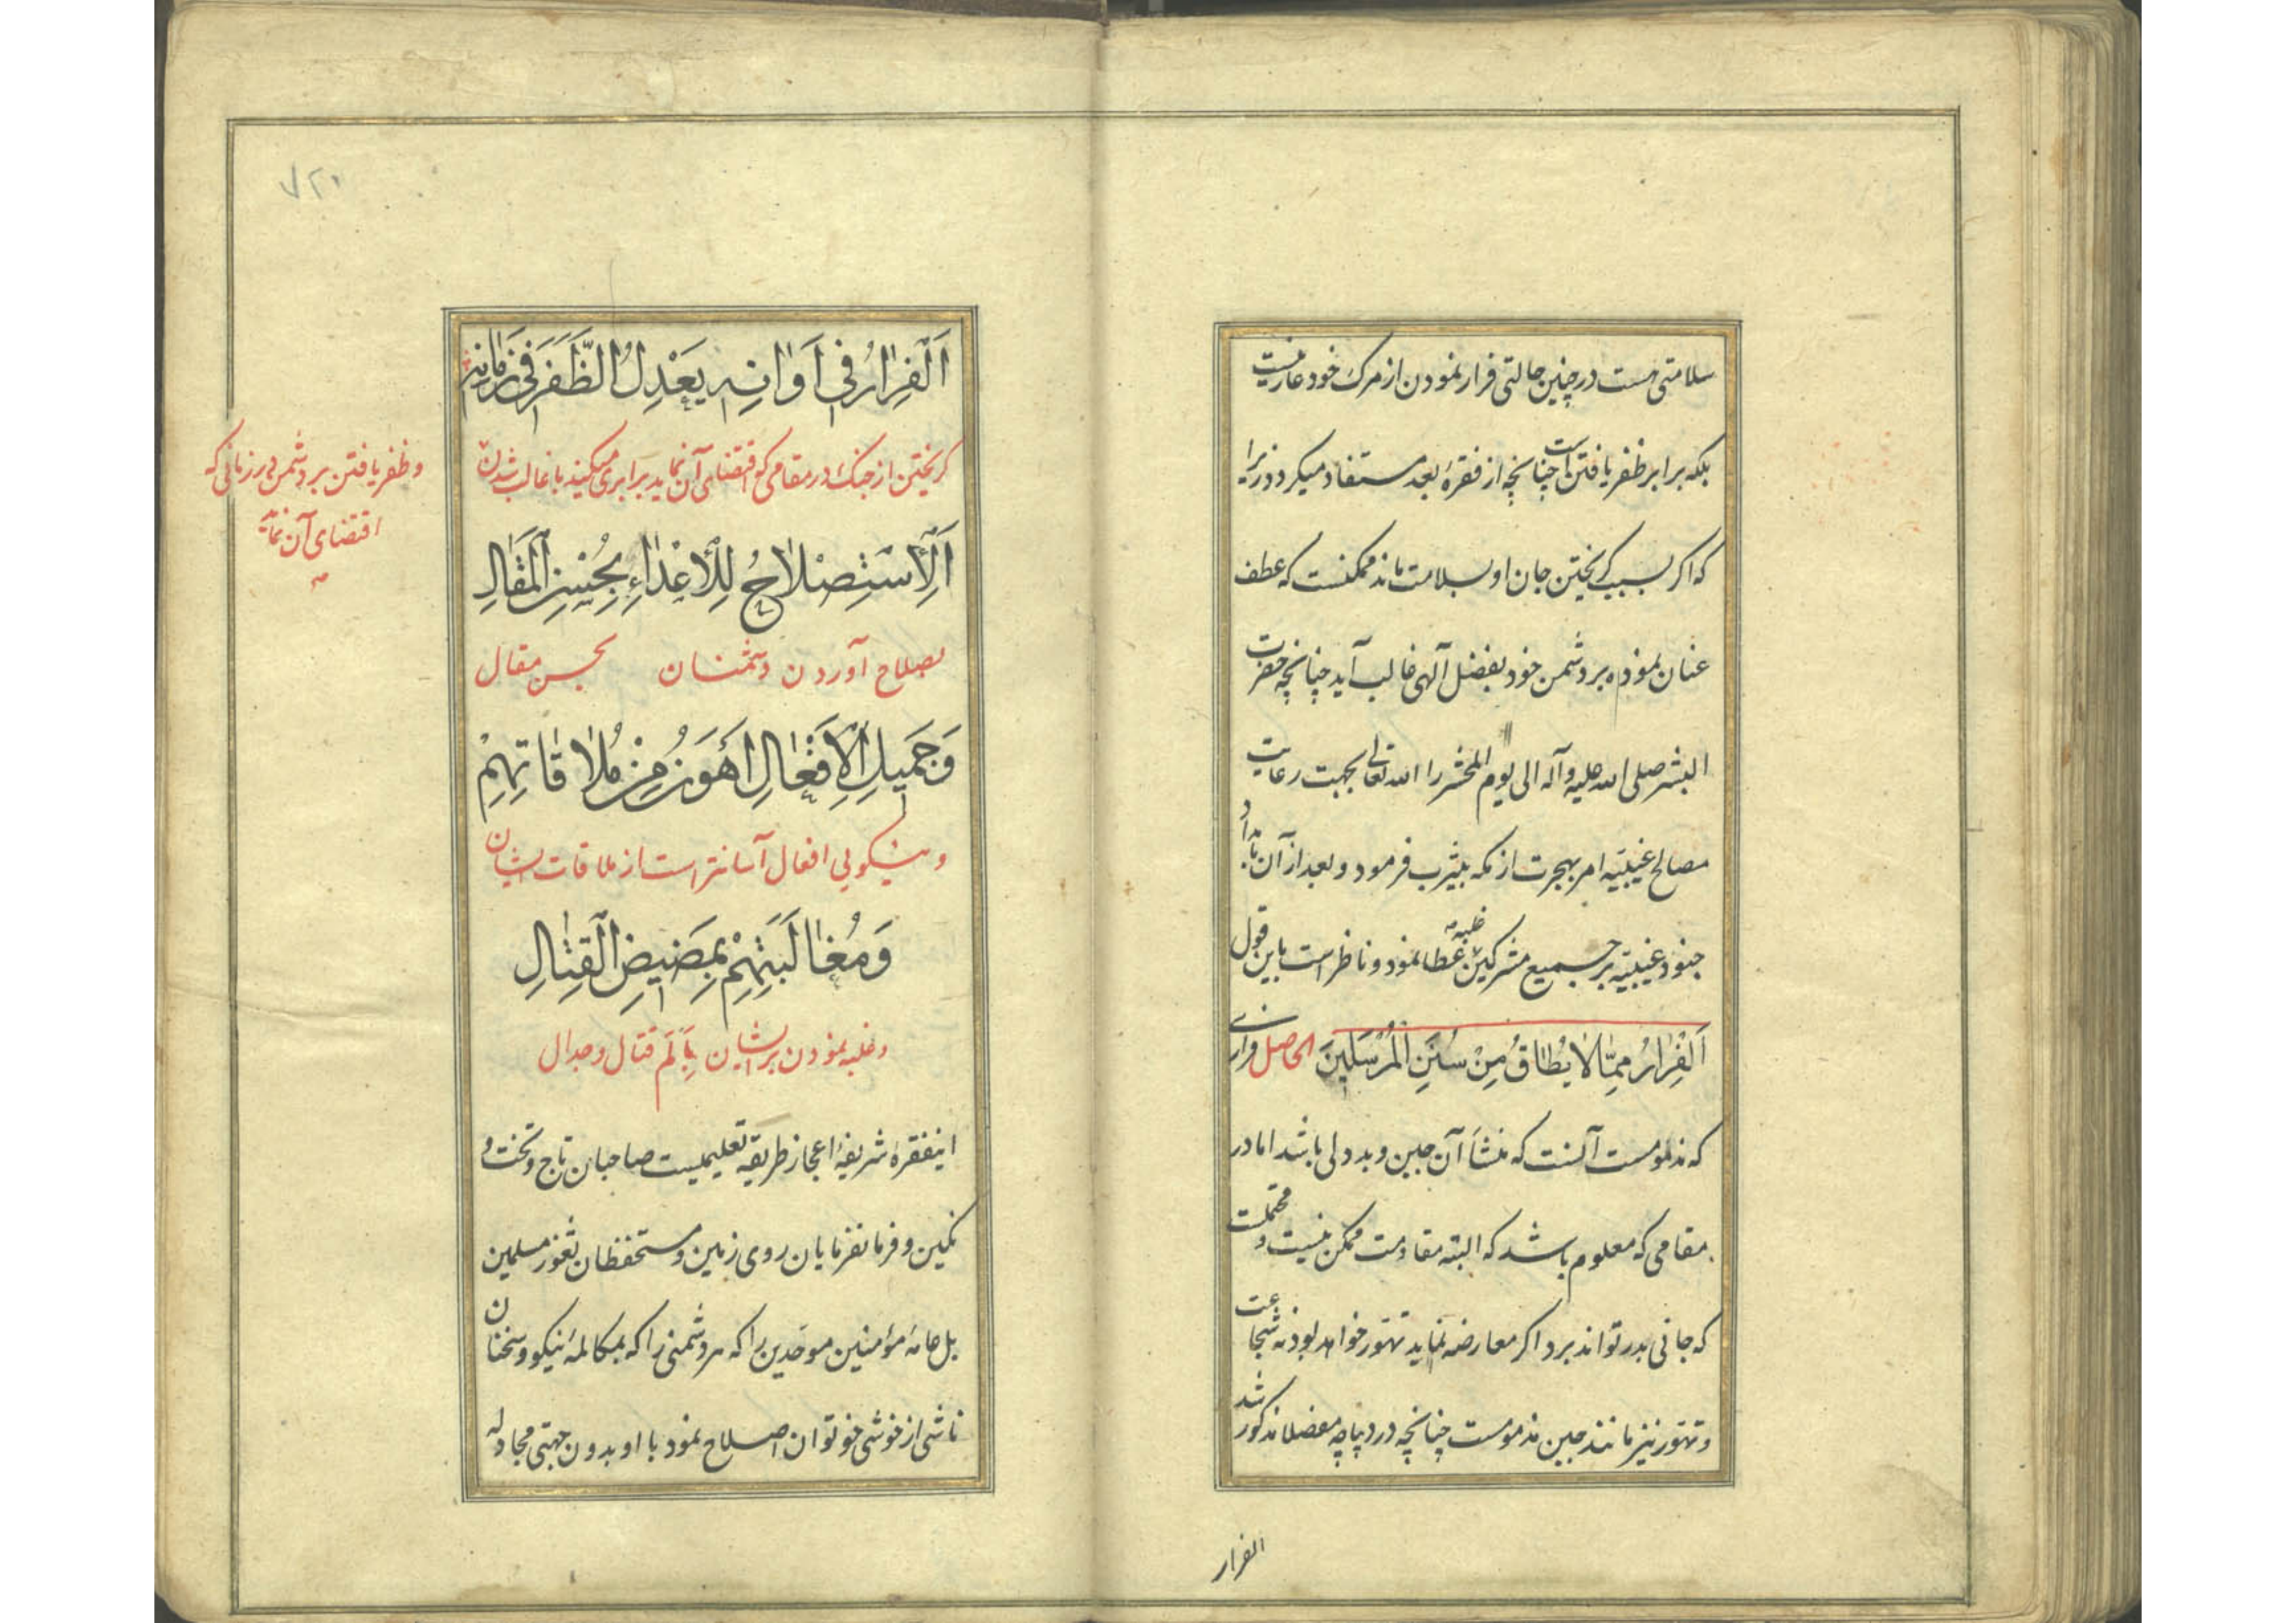 سلامتی هست در چنین حالتی فرار نمودن از مرک خود عار نیست
بلکه برابر ظفر یافتن است چنانچه از فقرهٔ بعد مستفاد میکردد زیرا
که اکر بسبب کریختن جان او بسلامت ماند ممکنست که عطف
عنان نموده بر دشمن خود بفضل آلهی غالب آید چنانچه حضرت
البشر صلی الله علیه وآله الی یوم المحشر را الله تعالی بجهت رعایت
مصالح غیبیّه امر بهجرت از مکه بیثرب فرمود و بعد از آن بامداد
جنود غیبیّه بر جمیع مشرکین غلبه عطا نمود و ناظر است باین قول
اَلْفِرٰارُ مِمّٰا لٰا یُطٰاقُ مِنْ سُنَنِ الْمُرْسَلینَ الحاصل فراری
که مذمومست آنست که منشأ آن جبن و بددلی باشد اما در
مقامی که معلوم باشد که البته مقاومت ممکن نیست و محتملست
که جانی بدر تواند برد اکر معارضه نماید تهوّر خواهد بود نه شجاعت
و تهوّر نیز مانند جبن مذمومست چنانچه در دیباچه مفصلا مذکور شد
الفرار
۷۲۰
اَلْفِرٰارُ فی اَوٰانِهِ یَعْدِلُ الظَّفَرَ فی زَمٰانِهِ
کریختن از جنک در مقامی که اقتضای آن نماید برابری میکند با غالب شدن
و ظفر یافتن بر دشمن در زمانی که
اقتضای آن نماید
اَلْاِسْتِصْلاٰحُ لِلْاَعْدٰاءِ بِحُسْنِ الْمَقٰالِ
بصلاح آوردن دشمنان بحسن مقال
وَجَمیلِ الْاَفْعٰالِ اَهْوَنُ مِنْ مُلاٰقٰاتِهِمْ
و نیکویی افعال آسانتر است از ملاقات ایشان
وَمُغٰالَبَتِهِمْ بِمَضیضِ الْقِتٰالِ
و غلبه نمودن بر ایشان بِاَلَم قتال و جدال
اینفقرهٔ شریفهٔ اعجاز طریقه تعلیمیست صاحبان تاج و تخت و
نکین و فرمانفرمایان روی زمین و مستحفظان ثغور مسلمین
بل عامهٔ مؤمنین موحّدین را که هر دشمنی را که بمکالمهٔ نیکو و سخنان
ناشی از خوشی خو توان اصلاح نمود با او بدون جهتی مجادله